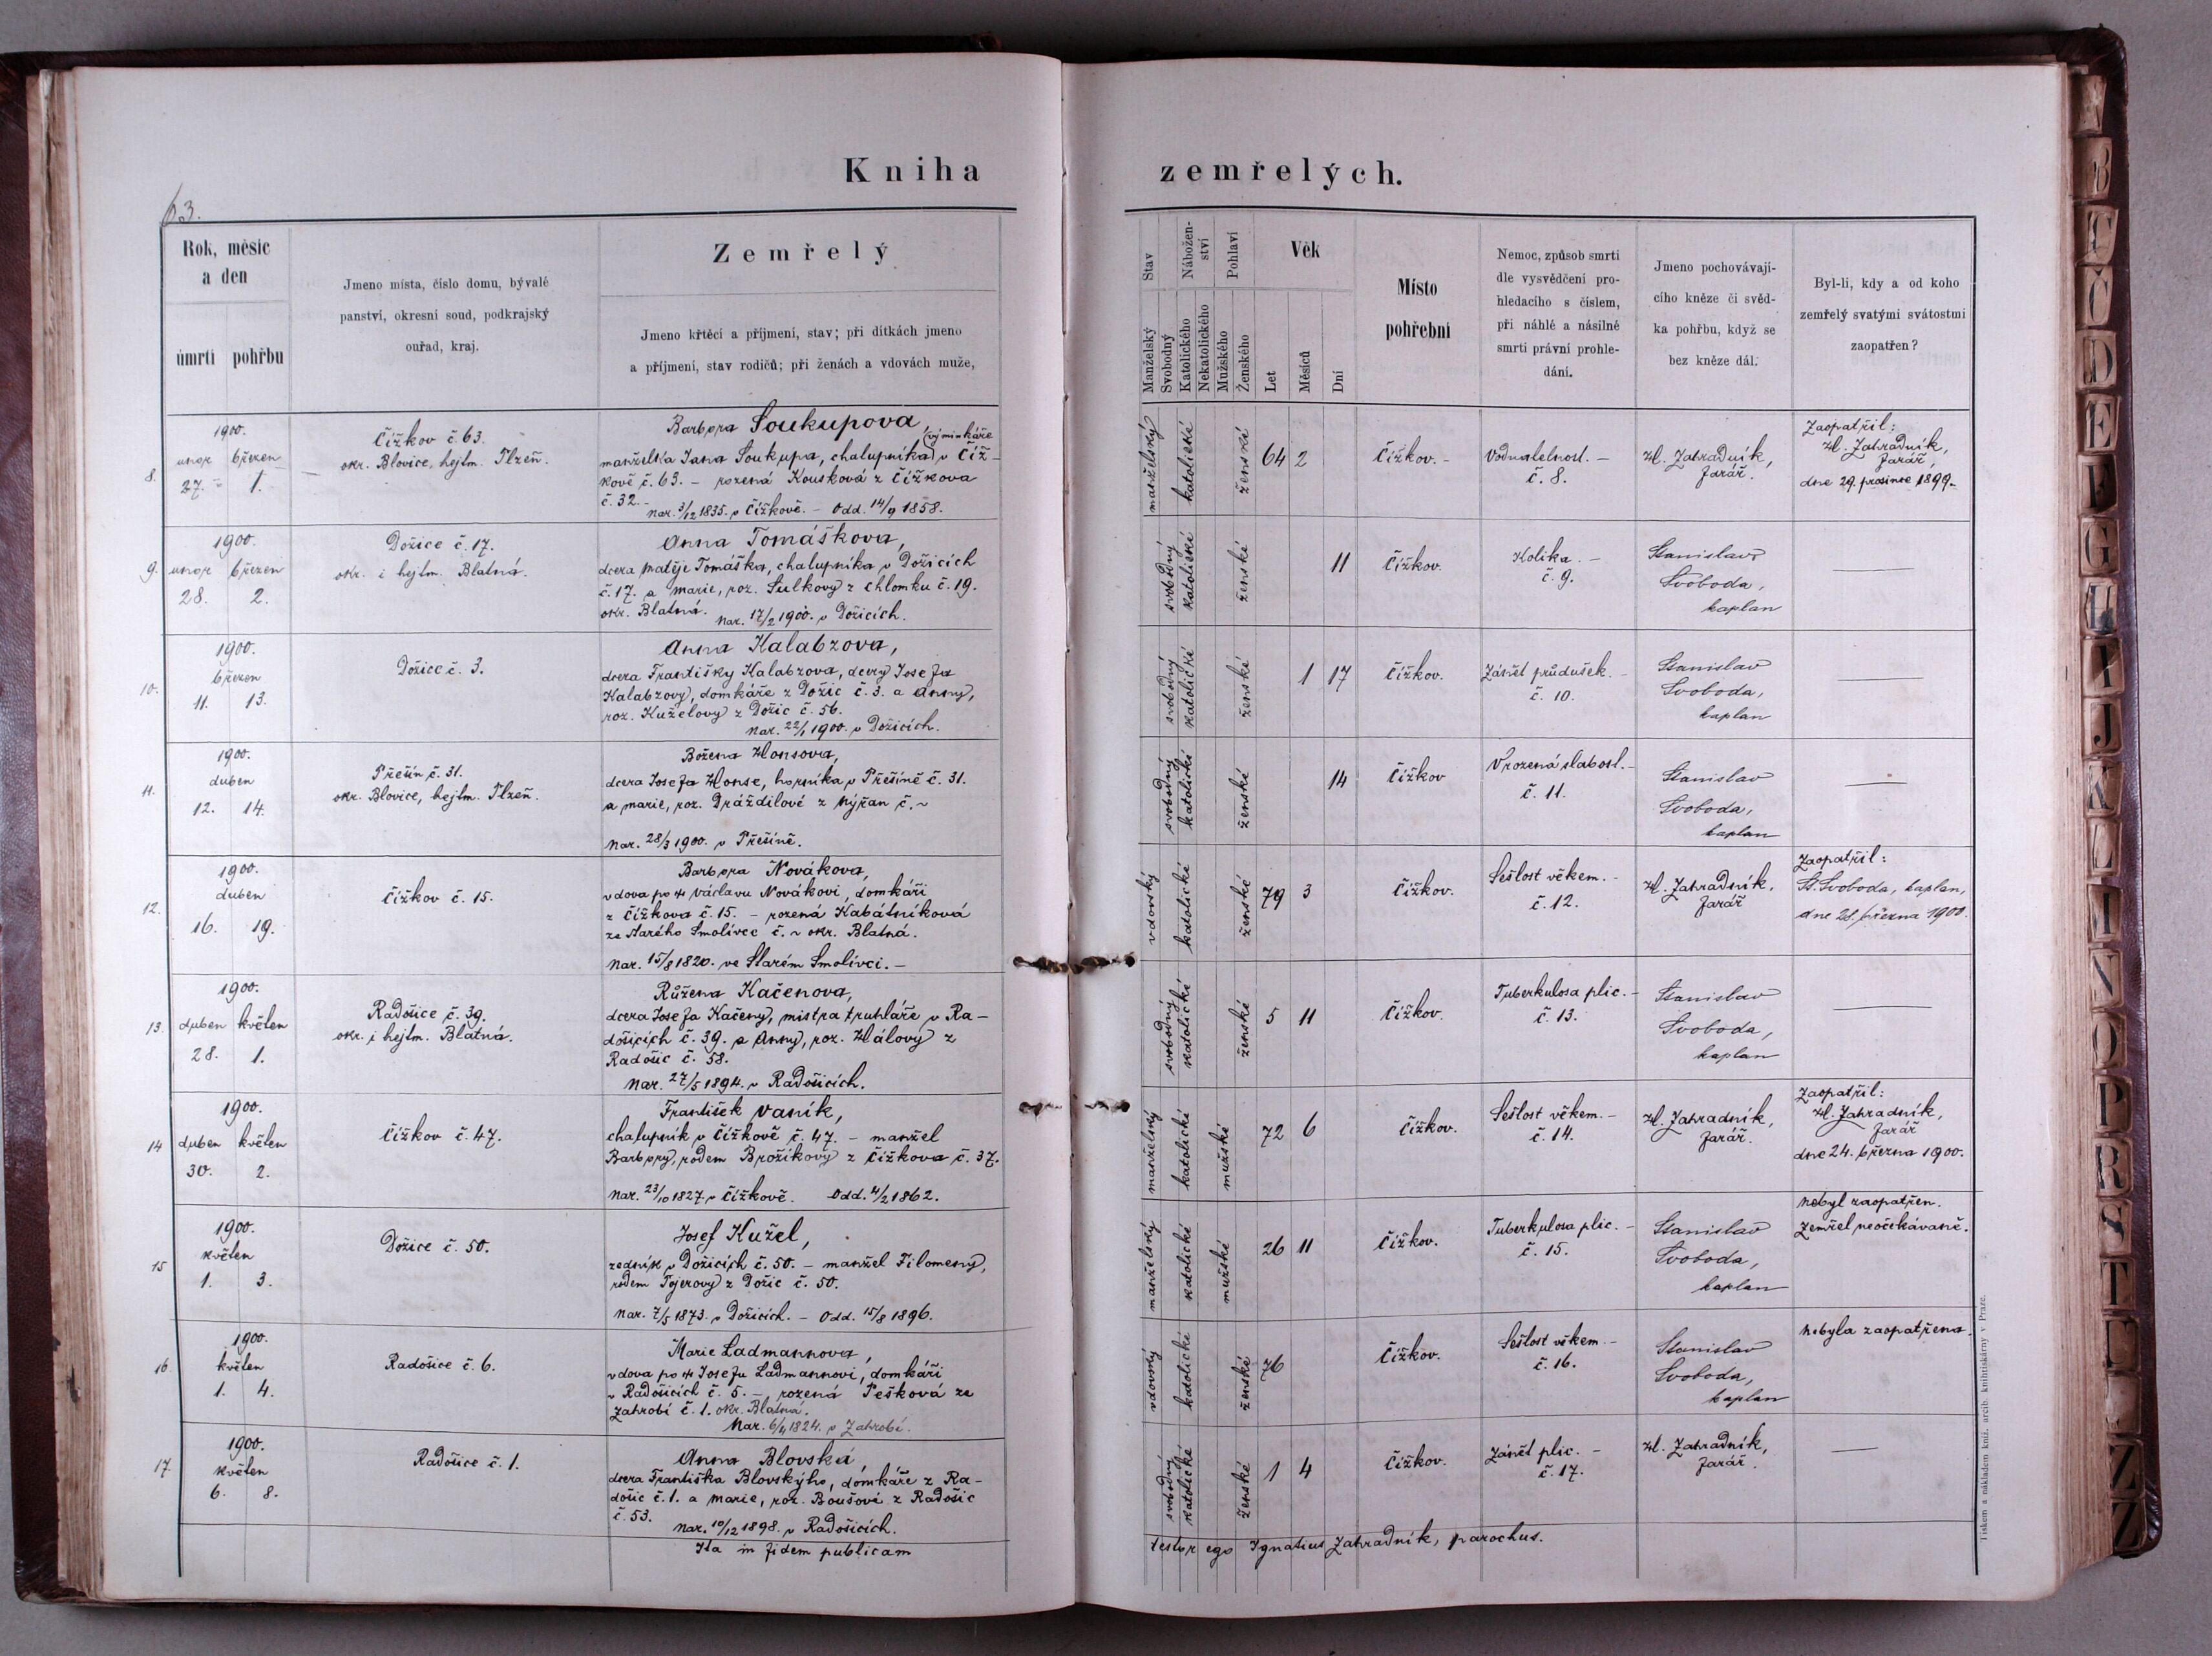 Kniha zemřelých.
63.
Rok, měsíc a den
úmrtí
pohřbu
Jmeno místa, číslo domu, bývalé
panství, okresní soud, podkrajský
ouřad, kraj.
Zemřelý
Jmeno křtěcí a příjmení, stav; při dítkách jmeno
a příjmení, stav rodičů; při ženách a vdovách muže,
Stav
Manželský
Svobodný
Nábožen-
ství
Katolického
Nekatolického
Pohlaví
Mužského
Ženského
Věk
Let
Měsíců
Dní
Místo
pohřební
Nemoc, způsob smrti
dle vysvědčení pro-
hledacího s číslem,
při náhlé a násilné
smrti právní prohle-
dání.
Jmeno pochovávají-
cího kněze či svěd-
ka pohřbu, když se
bez kněze dál.
Byl-li, kdy a od koho
zemřelý svatými svátostmi
zaopatřen?
8.
1900.
únor březen
27. 1.
Čížkov č. 63.
okr. Blovice, hejtm. Plzeň.
Barbora Soukupova,
(výminkáře
manželka Jana Soukupa, chalupníka v Číž-
kově č. 63. – rozená Kousková z Čížkova
č. 32. –
nar. 3/12 1835. v Čížkově. – Odd. 14/9 1858.
manželský
katolické
ženské
64 2
Čížkov. –
Vodnatelnost. –
č. 8.
Ig. Zahradník,
farář.
Zaopatřil:
Ig. Zahradník,
farář,
dne 29. prosince 1899.
9.
1900.
únor březen
28. 2.
Dožice č. 17.
okr. i hejtm. Blatná.
Anna Tomáškova,
dcera Matěje Tomáška, chalupníka v Dožicích
č. 17. a Marie, roz. Šulkovy z Chlomku č. 19.
okr. Blatná.
Nar. 17/2 1900. v Dožicích.
svobodný
katolické
ženské
11
Čížkov.
Kolika. –
č. 9.
Stanislav
Svoboda,
kaplan
10.
1900.
březen
11. 13.
Dožice č. 3.
Anna Kalabzova,
dcera Františky Kalabzova, dcery Josefa
Kalabzovy, domkáře z Dožic č. 3. a Anny,
roz. Kuželovy z Dožic č. 56.
Nar. 22/1 1900. v Dožicích.
svobodný
katolické
ženské
1 17
Čížkov.
Zánět průdušek. –
č. 10.
Stanislav
Svoboda,
kaplan
11.
1900.
duben
12. 14.
Přešín č. 31.
okr. Blovice, hejtm. Plzeň.
Božena Honsova,
dcera Josefa Honse, horníka v Přešíně č. 31.
a Marie, roz. Dráždilové z Nýřan č. ~
Nar. 28/3 1900. v Přešíně.
svobodný
katolické
ženské
14
Čížkov
Vrozená slabost. –
č. 11.
Stanislav
Svoboda,
kaplan
12.
1900.
duben
16. 19.
Čížkov č. 15.
Barbora Novákova,
vdova po † Václavu Novákovi, domkáři
z Čížkova č. 15. – rozená Kabátníková
ze Starého Smolivce č. ~ okr. Blatná.
Nar. 15/8 1820. ve Starém Smolivci. –
vdovský
katolické
ženské
79 3
Čížkov.
Sešlost věkem. –
č. 12.
Ig. Zahradník,
farář
Zaopatřil:
St. Svoboda, kaplan,
dne 28. března 1900.
13.
1900.
duben květen
28. 1.
Radošice č. 39.
okr. i hejtm. Blatná.
Růžena Kačenova,
dcera Josefa Kačeny, mistra truhláře v Ra-
došicích č. 39. a Anny, roz. Hálovy z
Radošic č. 58.
Nar. 27/5 1894. v Radošicích.
svobodný
katolické
ženské
5 11
Čížkov.
Tuberkulosa plic. –
č. 13.
Stanislav
Svoboda,
kaplan
14
1900.
duben květen
30. 2.
Čížkov č. 47.
František Vaník,
chalupník v Čížkově č. 47. – manžel
Barbory, rodem Brožíkovy z Čížkova č. 37.
Nar. 23/10 1827. v Čížkově. Odd. 4/2 1862.
manželský
katolické
mužské
72 6
Čížkov.
Sešlost věkem. –
č. 14.
Ig. Zahradník,
farář.
Zaopatřil:
Ig. Zahradník,
farář
dne 24. března 1900.
15
1900.
květen
1. 3.
Dožice č. 50.
Josef Kužel,
zedník v Dožicích č. 50. – manžel Filomeny,
rodem Tojerovy z Dožic č. 50.
Nar. 7/5 1873. v Dožicích. – Odd. 15/8 1896.
manželský
katolické
mužské
26 11
Čížkov.
Tuberkulosa plic. –
č. 15.
Stanislav
Svoboda,
kaplan
Nebyl zaopatřen.
Zemřel neočekávaně.
16.
1900.
květen
1. 4.
Radošice č. 6.
Marie Ladmannova,
vdova po † Josefu Ladmannovi, domkáři
v Radošicích č. 5. – rozená Pešková ze
Zahrobí č. 1. okr. Blatná.
Nar. 6/4 1824. v Zahrobí.
vdovský
katolické
ženské
76
Čížkov.
Sešlost věkem. –
č. 16.
Stanislav
Svoboda,
kaplan
Nebyla zaopatřena.
17.
1900.
květen
6. 8.
Radošice č. 1.
Anna Blovská,
dcera Františka Blovskýho, domkáře z Ra-
došic č. 1. a Marie, roz. Boušové z Radošic
č. 53.
Nar. 10/12 1898. v Radošicích.
svobodný
katolické
ženské
1 4
Čížkov.
Zánět plic. –
č. 17.
Ig. Zahradník,
farář.
Ita in fidem publicam testor ego Ignatius Zahradník, parochus.
Tiskem a nákladem kníž. arcib. knihtiskárny v Praze.
B
C
Č
D
E
F
G
H
I
J
K
L
M
N
O
P
R
S
T
U
Z
Ž